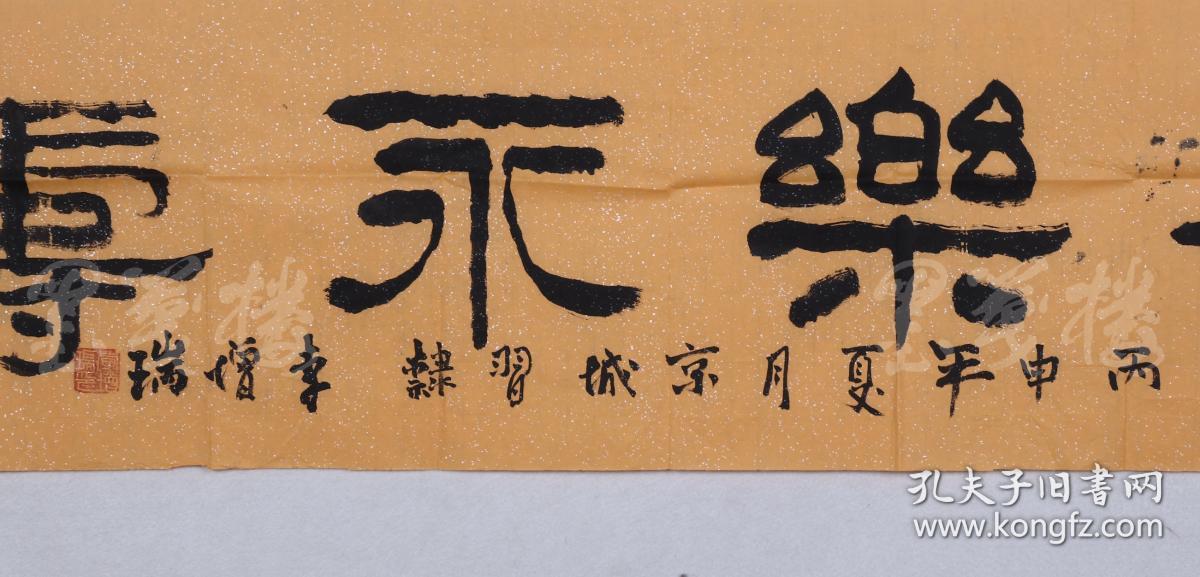 樂永壽
丙申年夏月京城習隸李增瑞
墨笺楼
墨笺楼
孔夫子旧書网
www.kongfz.com